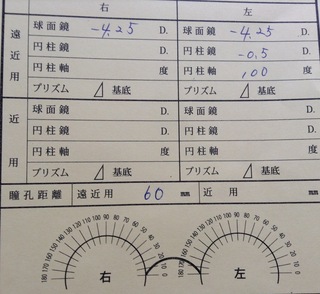 右 左
遠近用 球面鏡 -4.25 D. 球面鏡 -4.25 D.
円柱鏡 D. 円柱鏡 -0.5 D.
円柱軸 度 円柱軸 100 度
プリズム 基底 プリズム 基底
近用 球面鏡 D. 球面鏡 D.
円柱鏡 D. 円柱鏡 D.
円柱軸 度 円柱軸 度
プリズム 基底 プリズム 基底
瞳孔距離 遠近用 60 ㎜ 近用 ㎜
180 170 160 150 140 130 120 110 100 90 80 70 60 50 40 30 20 10 0
右
180 170 160 150 140 130 120 110 100 90 80 70 60 50 40 30 20 10 0
左